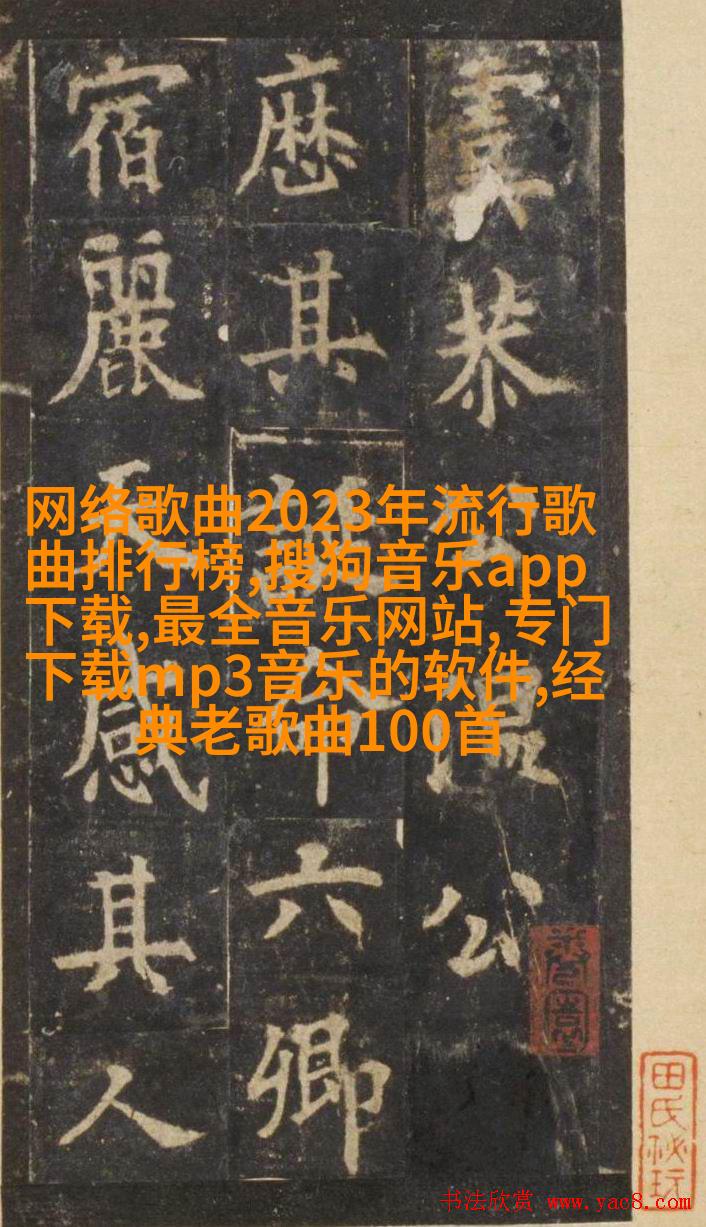 恭公温公
厯其命六卿
宿麗天感其人
网络歌曲2023年流行歌
曲排行榜,搜狗音乐app
下载,最全音乐网站,专门
下载mp3音乐的软件,经
典老歌曲100首
田氏秘玩
书法欣赏 www.yac8.com